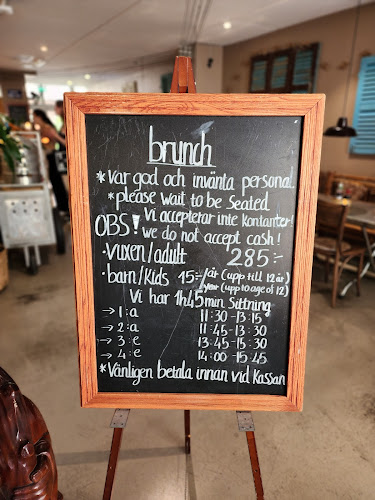 brunch
*var god och invänta personal.
*please wait to be Seated
OBS! Vi accepterar inte Kontanter!
we do not accept cash!
·vuxen/adult 285:-
·barn/Kids 15:-/år (upp till 12 år)
year (upp to age of 12)
Vi har 1h45min Sittning
→ 1:a 11:30-13:15
→ 2:a 11:45-13:30
→ 3:e 13:45-15:30
→ 4:e 14:00-15:45
*Vänligen betala innan vid Kassan